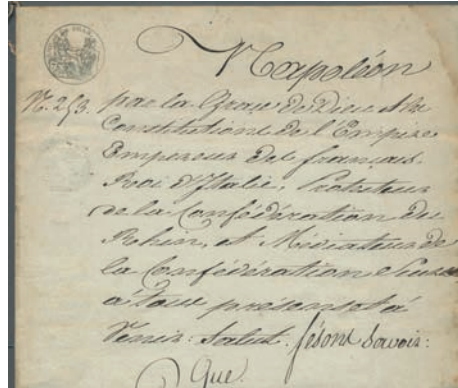 Napoléon
N. 253. par la Grace de Dieu et les
Constitutions de l'Empire
Empereur des français.
Roi d'Italie, Protecteur
de la Confédération du
Rhin, et Médiateur de
la Confédération Suisse
à tous présens et à
Venir: Salut. fésons Savoir:
Que.